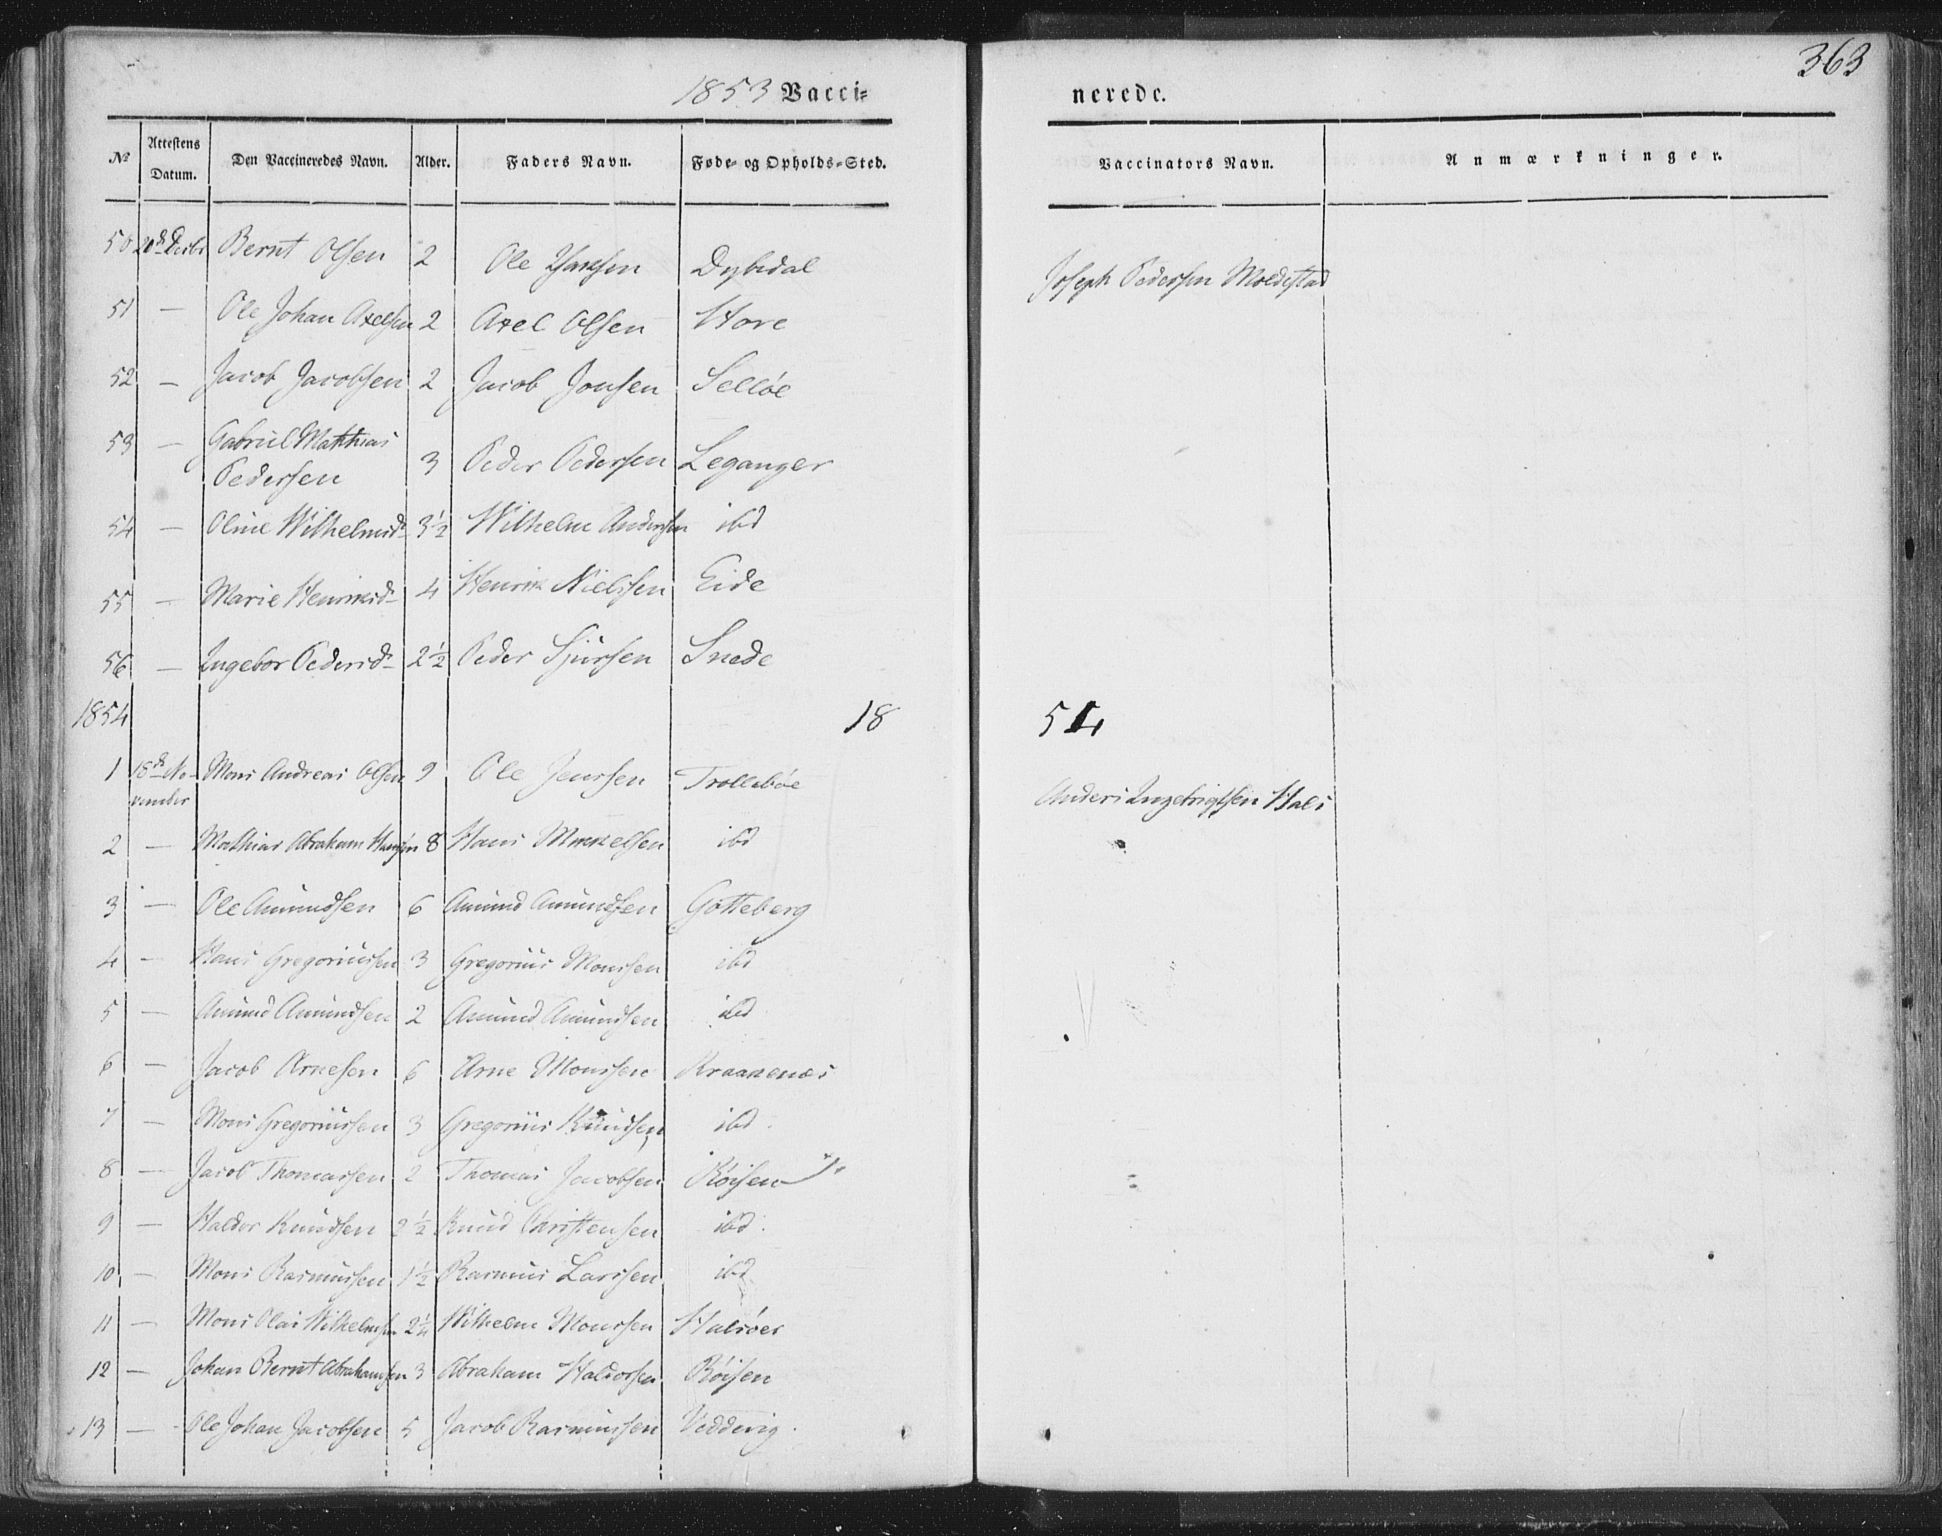 363
1853 Vacci=
nerede.
No Attestens Datum. Den Vaccineredes Navn. Alder. Faders Navn. Føde- og Opholds-Sted. Vaccinators Navn. Anmærkninger.
50 20de Decbr Bernt Olsen 2 Ole Hansen Dybedal Joseph Pedersen Moldestad
51 — Ole Johan Axelsen 2 Axel Olsen Hove
52 — Jacob Jacobsen 2 Jacob Jonsen Selløe
53 — Gabriel Matthias
Pedersen 3 Peder Pedersen Leganger
54 — Oline Wilhelmsd 3½ Wilhelm Andersen ibd
55 — Marie Henriksd 4 Henrik Nielssen Eide
56 — Ingebor Pedersd 2½ Peder Sjursen Snede
1854 18 54
1 18de No- Mons Andreas Olsen 9 Ole Jenssen Trollebøe Anders Ingebrigtsen Hals
vember
2 — Mathias Abraham Hansen 8 Hans Mikkelsen ibd
3 — Ole Amundsen 6 Amund Amundsen Gotteberg
4 — Hans Gregoriussen 3 Gregorius Monssen ibd
5 — Amund Amundsen 2 Amund Amundsen ibd
6 — Jacob Arnesen 6 Arne Monssen Kraakenæs
7 — Mons Gregoriussen 3 Gregorius Knudsen ibd
8 — Jacob Thomassen 2 Thomas Jacobsen Røisen
9 — Haldor Knudsen 2½ Knud Christensen ibd
10 — Mons Rasmussen 1½ Rasmus Larssen ibd
11 — Mons Olai Wilhelmsen 2¼ Wilhelm Monssen Halsøer
12 — Johan Bernt Abrahamsen 3 Abraham Haldorsen Røisen
13 — Ole Johan Jacobsen 5 Jacob Rasmussen Vedvig